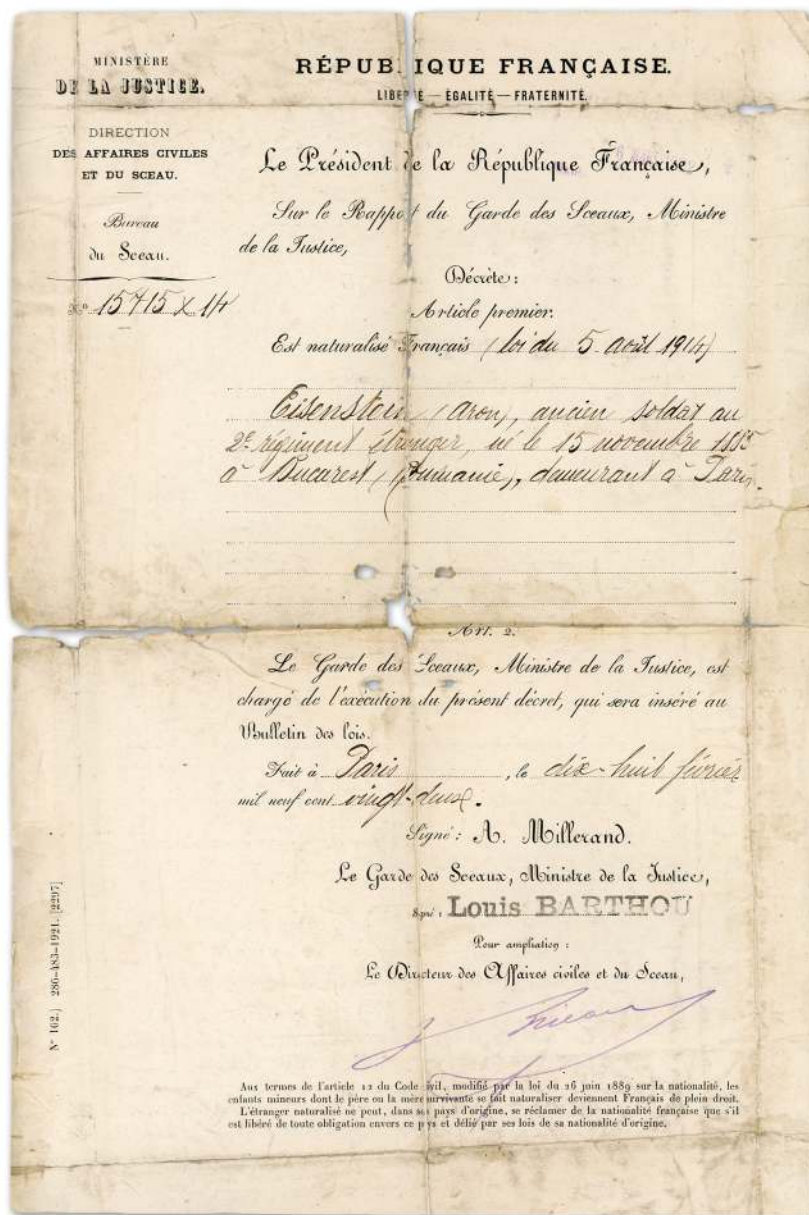 MINISTÈRE
DE LA JUSTICE.
DIRECTION
DES AFFAIRES CIVILES
ET DU SCEAU.
Bureau
du Sceau.
N° 15715 X 14
RÉPUBLIQUE FRANÇAISE.
LIBERTÉ — ÉGALITÉ — FRATERNITÉ.
Le Président de la République Française,
Sur le Rapport du Garde des Sceaux, Ministre
de la Justice,
Décrète :
Article premier.
Est naturalisé Français (loi du 5 août 1914)
Eisenstein (Aron), ancien soldat au
2e régiment étranger, né le 15 novembre 1885
à Bucarest (Roumanie), demeurant à Paris.
Art. 2.
Le Garde des Sceaux, Ministre de la Justice, est
chargé de l'exécution du présent décret, qui sera inséré au
Bulletin des lois.
Fait à Paris, le dix-huit février
mil neuf cent vingt-deux.
Signé : A. Millerand.
Le Garde des Sceaux, Ministre de la Justice,
Signé : Louis BARTHOU
Pour ampliation :
Le Directeur des Affaires civiles et du Sceau,
Aux termes de l'article 12 du Code civil, modifié par la loi du 26 juin 1889 sur la nationalité, les
enfants mineurs dont le père ou la mère survivante se fait naturaliser deviennent Français de plein droit.
L'étranger naturalisé ne peut, dans son pays d'origine, se réclamer de la nationalité française que s'il
est libéré de toute obligation envers ce pays et délié par ses lois de sa nationalité d'origine.
N° 162.] 286-483-1921. [2297]